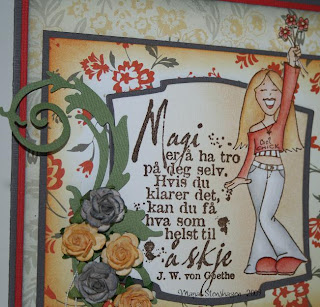 Magi
er å ha tro
på deg selv.
Hvis du
klarer det,
kan du få
hva som
helst til
å skje
J. W. von Goethe